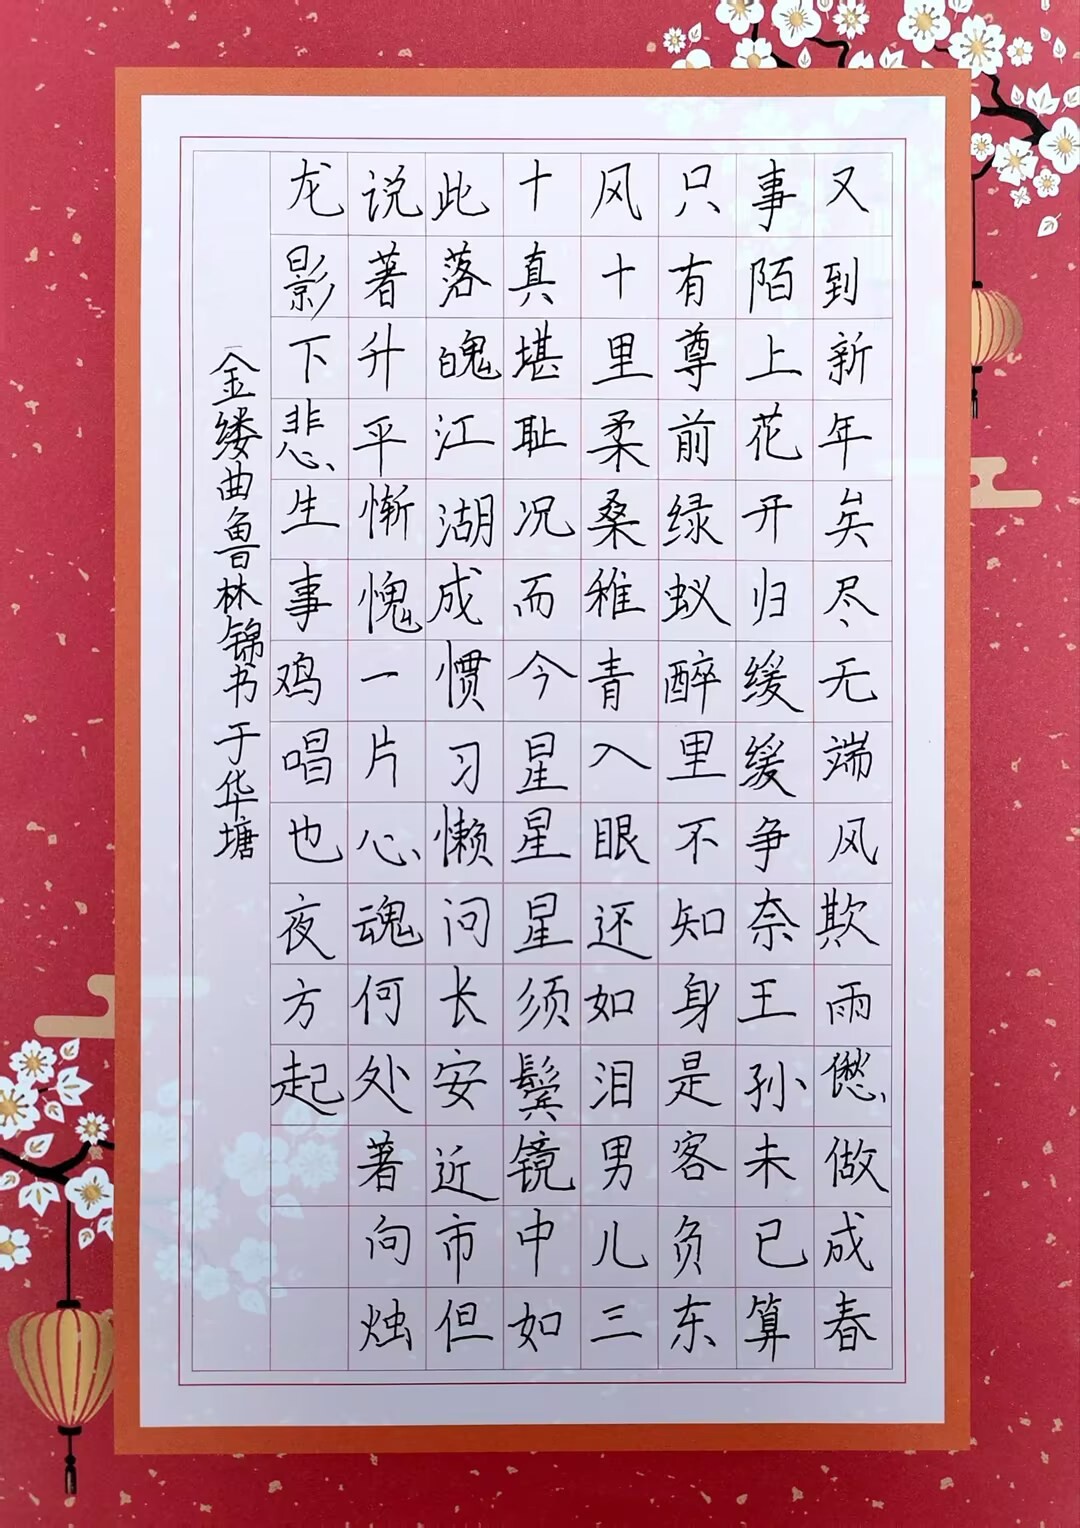 又到新年矣尽无端风欺雨僽做成春
事陌上花开归缓缓争奈王孙未已算
只有尊前绿蚁醉里不知身是客负东
风十里柔桑稚青入眼还如泪男儿三
十真堪耻况而今星星星须鬓镜中如
此落魄江湖成惯习懒问长安近市但
说著升平惭愧一片心魂何处著向烛
龙影下悲生事鸡唱也夜方起
金缕曲鲁林锦书于华塘